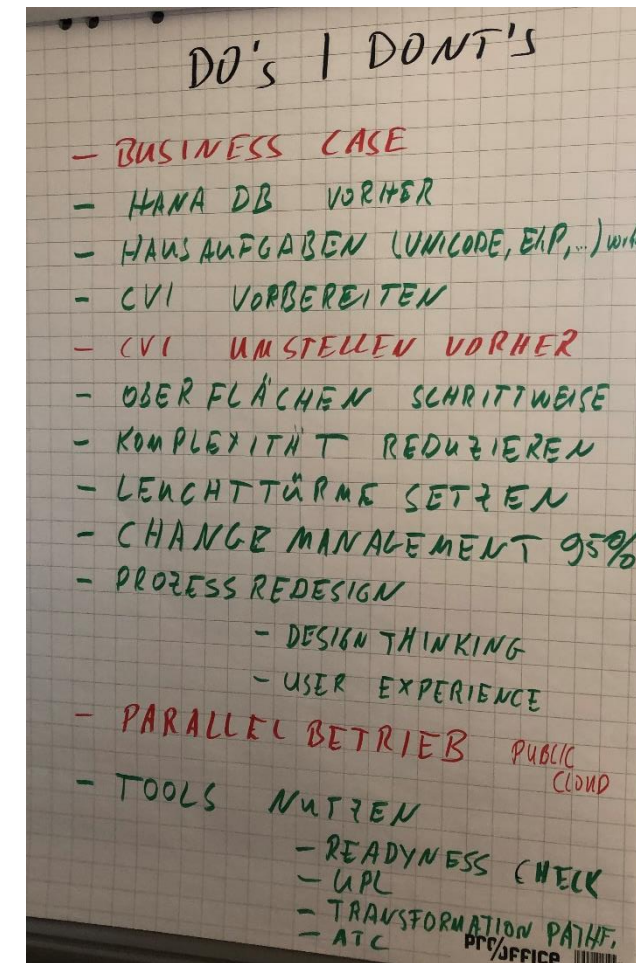 DO's | DONT'S
- BUSINESS CASE
- HANA DB VORHER
- HAUSAUFGABEN (UNICODE, EHP, ...)
- CVI VORBEREITEN
- CVI UMSTELLEN VORHER
- OBERFLÄCHEN SCHRITTWEISE
- KOMPLEXITÄT REDUZIEREN
- LEUCHTTÜRME SETZEN
- CHANGE MANAGEMENT 95%
- PROZESS REDESIGN
- DESIGN THINKING
- USER EXPERIENCE
- PARALLEL BETRIEB PUBLIC
CLOUD
- TOOLS NUTZEN
- READYNESS CHECK
- UPL
- TRANSFORMATION PATHF.
- ATC
OFFICE